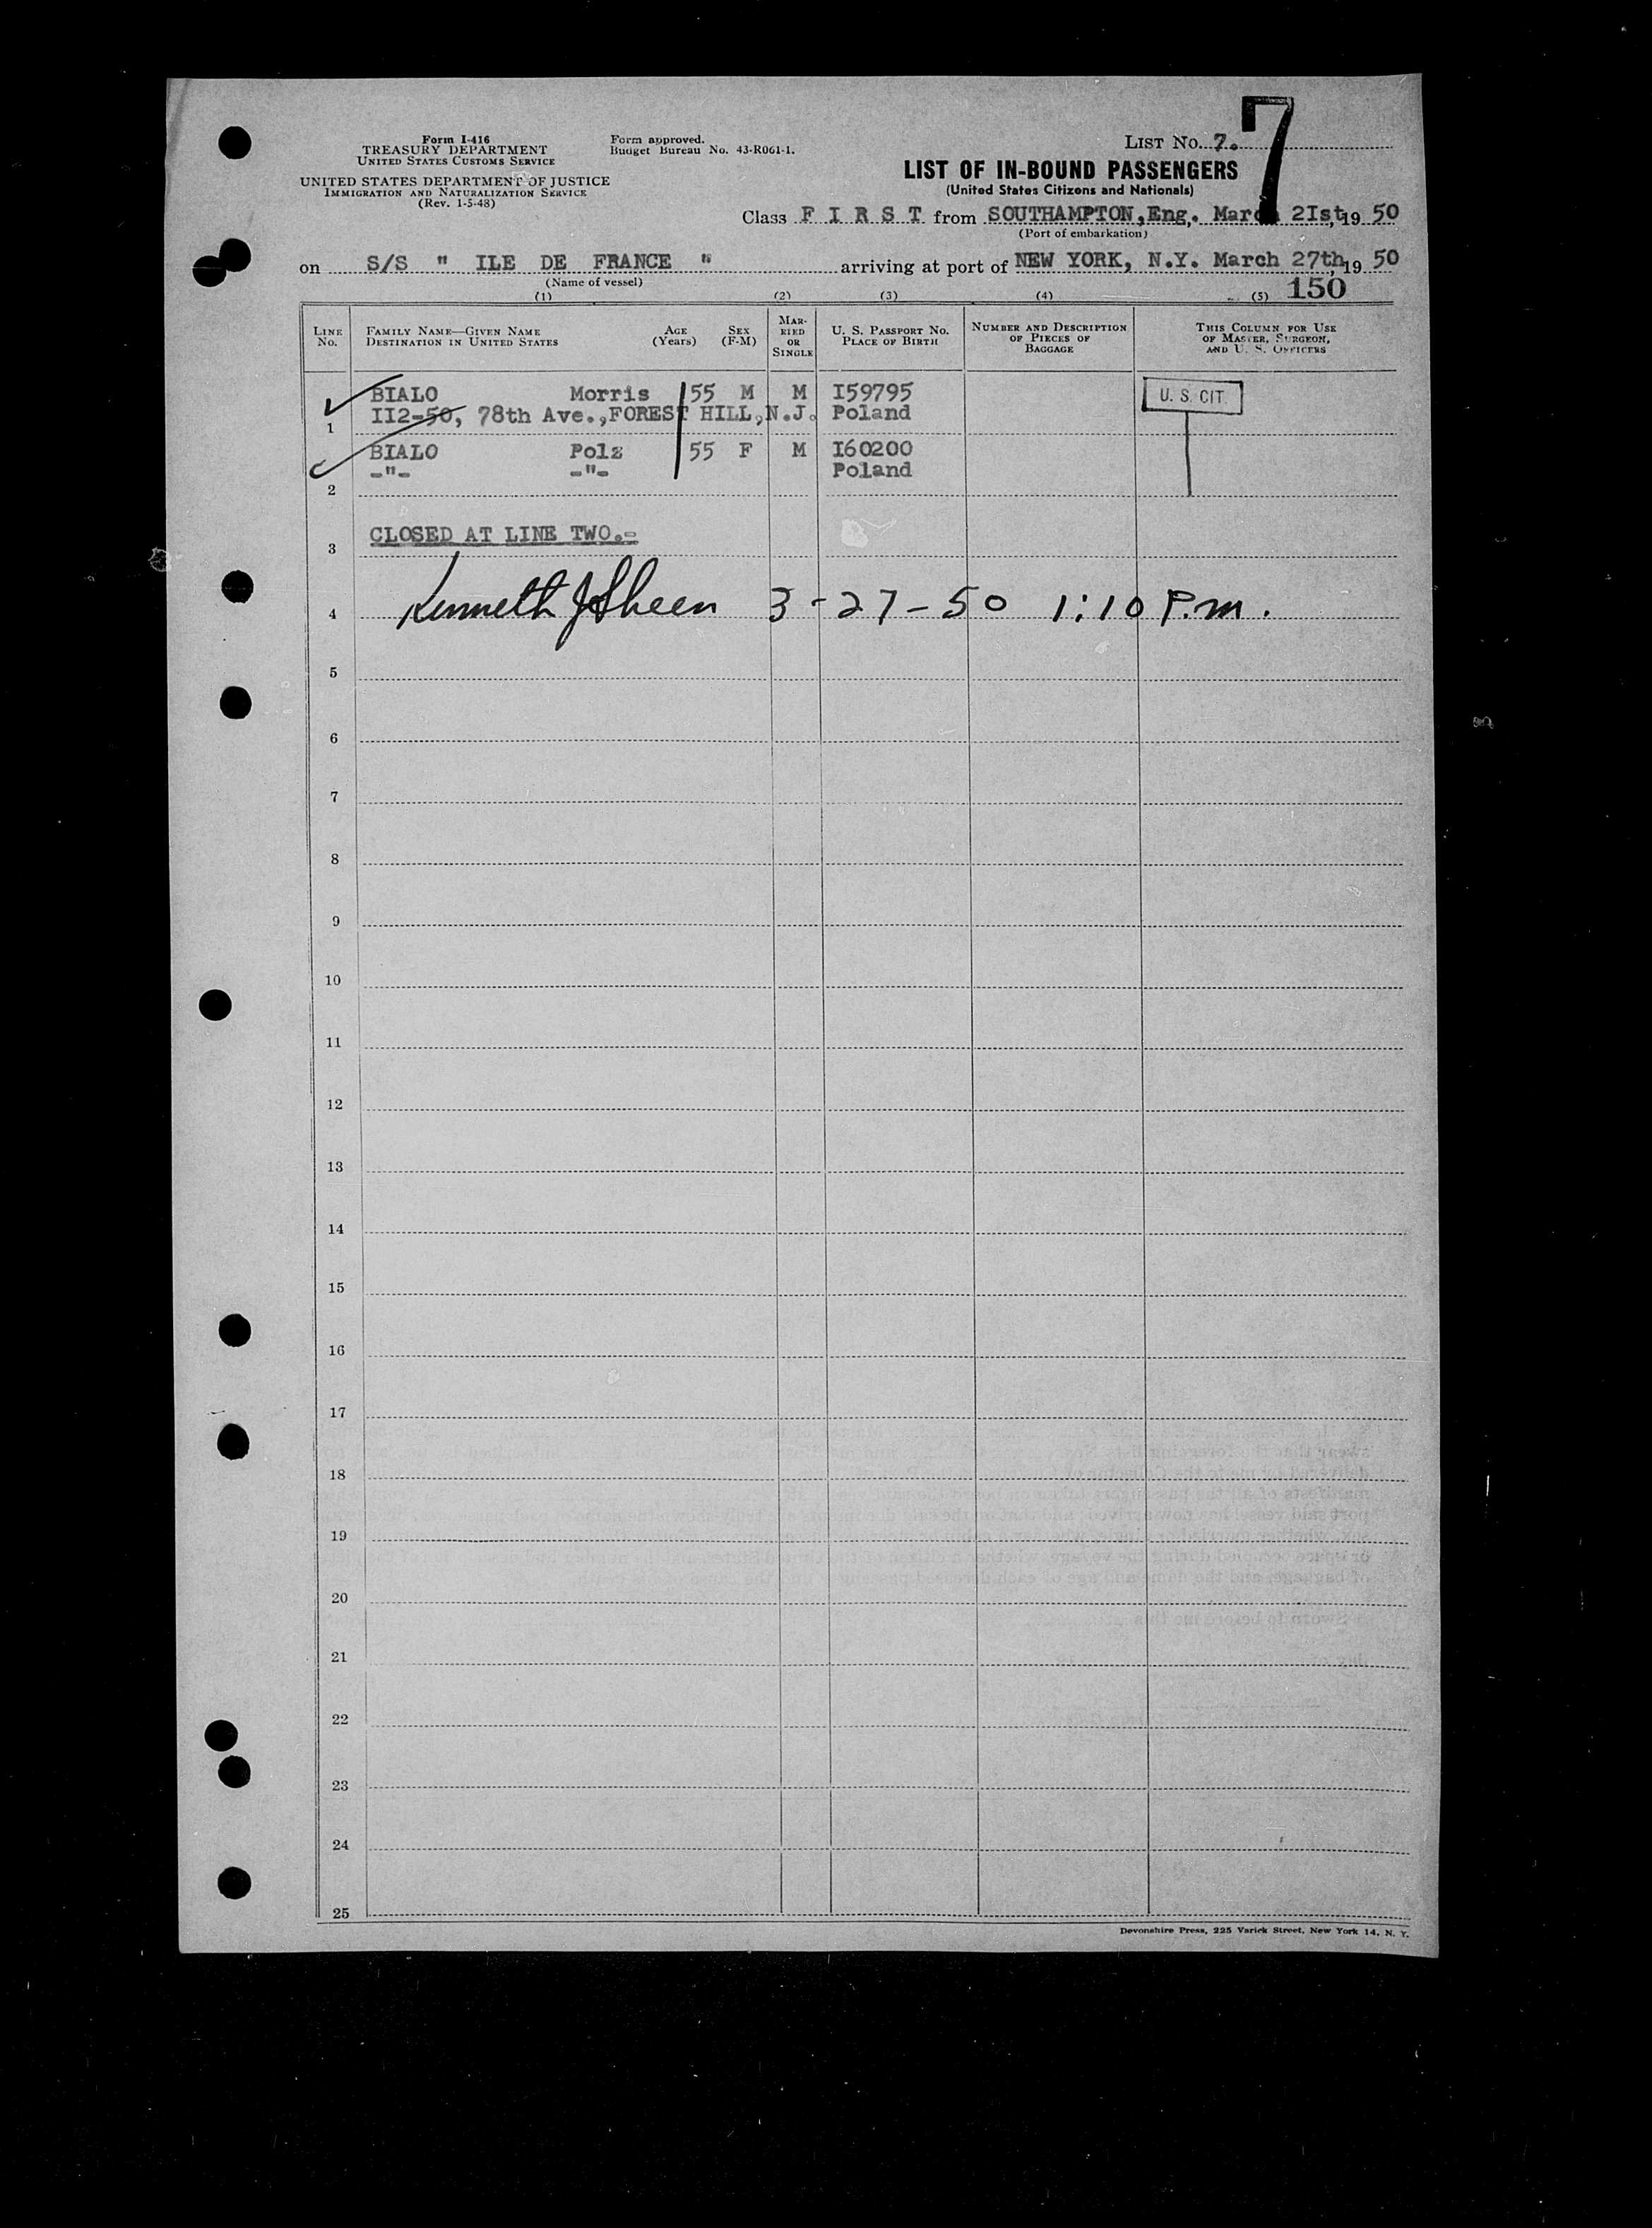 Form I-416
TREASURY DEPARTMENT
UNITED STATES CUSTOMS SERVICE
UNITED STATES DEPARTMENT OF JUSTICE
IMMIGRATION AND NATURALIZATION SERVICE
(Rev. 1-5-48)
Form approved.
Budget Bureau No. 43-R061-1.
7
LIST No. 7.
LIST OF IN-BOUND PASSENGERS
(United States Citizens and Nationals)
Class F I R S T from SOUTHAMPTON,Eng. March 2Ist, 19 50
(Port of embarkation)
on S/S " ILE DE FRANCE " arriving at port of NEW YORK, N.Y. March 27th, 19 50
(Name of vessel)
150
(1) (2) (3) (4) (5)
LINE No.
FAMILY NAME—GIVEN NAME
DESTINATION IN UNITED STATES
AGE (Years)
SEX (F-M)
MARRIED OR SINGLE
U. S. PASSPORT NO.
PLACE OF BIRTH
NUMBER AND DESCRIPTION OF PIECES OF BAGGAGE
THIS COLUMN FOR USE OF MASTER, SURGEON, AND U. S. OFFICERS
BIALO Morris 55 M M I59795 U. S. CIT.
1 II2-50, 78th Ave.,FOREST HILL,N.J. Poland
BIALO Polz 55 F M I60200
-"- -"- Poland
2
CLOSED AT LINE TWO.-
3
4 Kenneth J Sheen 3-27-50 1:10 P.m.
5
6
7
8
9
10
11
12
13
14
15
16
17
18
19
20
21
22
23
24
25
Devonshire Press, 225 Varick Street, New York 14, N. Y.